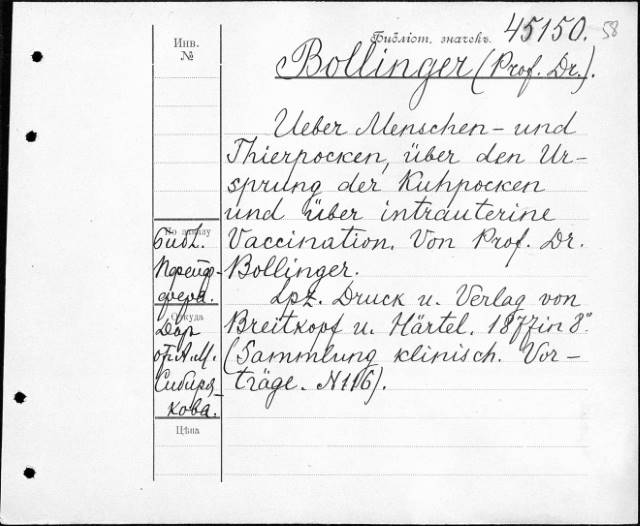 Библіот. значекъ. 45150. 58
Инв.
№
Bollinger (Prof. Dr.).
Ueber Menschen- und
Thierpocken, über den Ur-
sprung der Kuhpocken
und über intrauterine
Vaccination. Von Prof. Dr.
Bollinger.
Lpz. Druck u. Verlag von
Breitkopf u. Härtel. 1877 in 8°
(Sammlung klinisch. Vor-
träge. N 116).
По заказу
Библ.
Пфейф-
фера.
Откуда
Даръ
от А. М.
Сибиря-
кова.
Цѣна